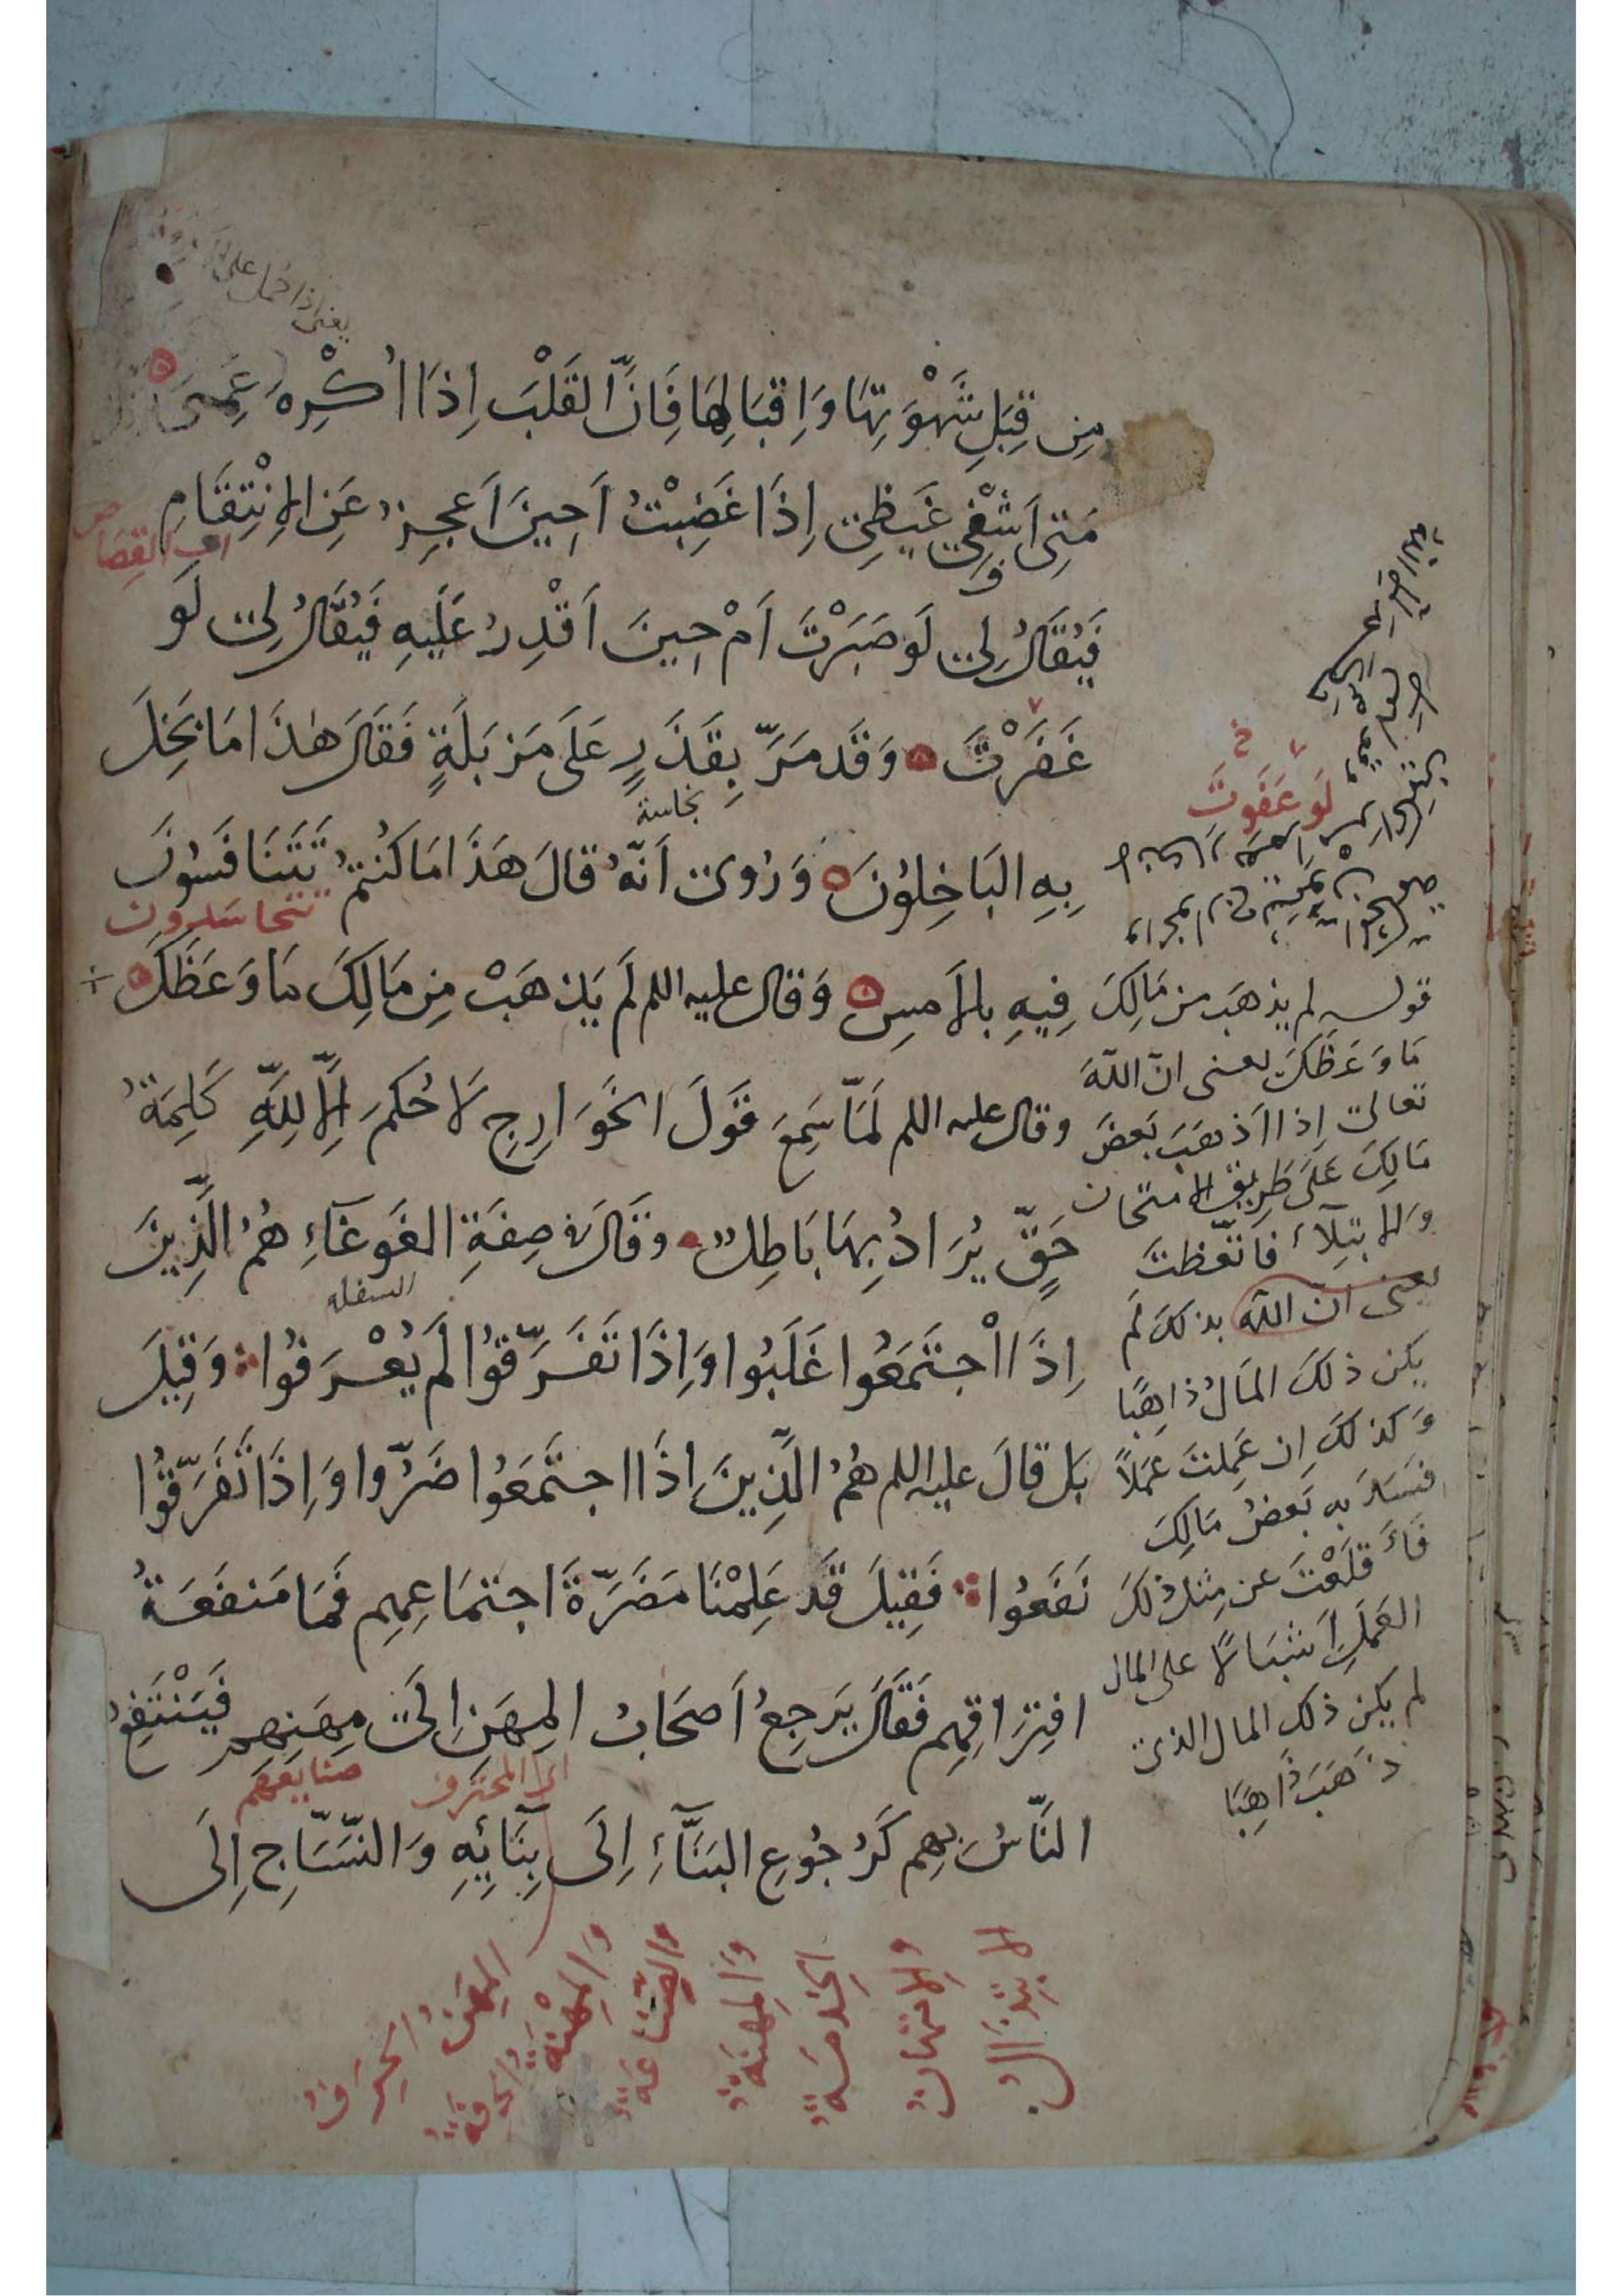 يعنى اذا حمل على
مِن قِبَلِ شَهْوَتِهَا وَاِقبَالِهَا فَاِنَّ القَلْبَ اِذَا اُكْرِهَ عَمِىَ
مَتى اَشْفِي غَيظِى اِذَا غَضِبْتُ اَحِينَ اَعجِزُ عَنِ الاِنْتِقَامِ
اى القِصَاص
فَيُقَالُ لِى لَو صَبَرْتَ اَمْ حِينَ اَقْدِرُ عَلَيهِ فَيُقَالُ لِى لَو
غَفَرْتَ وَقَد مَرَّ بِقَذَرٍ عَلَى مَزبَلَةٍ فَقَالَ هٰذَا مَا بَخِلَ
نجاسة
لَو عَفَوتَ
خ
بِهِ البَاخِلُونَ وَرُوِىَ اَنَّهُ قالَ هَذَا مَا كُنتُم تَتَنَافَسُونَ
تتحاسدون
فِيهِ بالاَمسِ وَقال عليه اللم لَم يَذهَبْ مِن مَالِكَ مَا وَعَظَكَ
وقال عليه اللم لَمَّا سَمِعَ قَولَ الخَوَارِجِ لَا حُكمَ اِلَّا لِلَّهِ كَلِمَةُ
حَقٍّ يُرَادُ بِهَا بَاطِلٌ وقَالَ فى صِفَةِ الغَوغَآءِ هُمُ الَّذِينَ
السفله
اِذَا اجْتَمَعُوا غَلَبُوا وَاِذَا تَفَرَّقُوا لَم يُعْرَفُوا وَقِيلَ
بَل قالَ عليه اللم هُمُ الَّذِينَ اذَا اجتَمَعُوا ضَرُّوا وَاِذَا تَفَرَّقُوا
نَفَعُوا فَقِيلَ قَد عَلِمْنَا مَضَرَّةَ اجتمَاعِهِم فَمَا مَنفَعَةُ
افتِرَاقِهِم فَقَالَ يَرجِعُ اَصحَابُ المِهَنِ اِلَى مِهَنِهِم فَيَنْتَفِعُ
صنايعهم
النَّاسُ بِهِم كَرُجُوعِ البَنَّآءِ اِلَى بِنَآئِهِ وَالنَّسَّاجِ اِلَى
قوله لم يذهَب من مَالِكَ
مَا وَعَظَكَ يعنى انّ اللّهَ
تعالى اِذا اَذهَبَ بَعضَ
مَالِكَ عَلَى طَرِيقِ الامتحان
وَالابتِلَاءِ فاتّعَظتَ
يعنى ان الله بذلكَ لَم
يكن ذلكَ المَالُ ذاهِبًا
وَكذلكَ اِن عَمِلتَ عَمَلاً
فسَدَ به بَعضُ مَالِكَ
فَاَقلَعْتَ عن مِثلِ ذلكَ
العَمَلِ على المال
لم يكن ذلك المال الذى
ذَهَبَ ذَاهِبًا
المِهَنُ الحِرَفُ
وَالمِهْنَةُ الحرفَةُ
والصِّنَاعَةُ
وَالمِهنَةُ
الخِدمَةُ
والامتهانُ
الابتِذَالُ